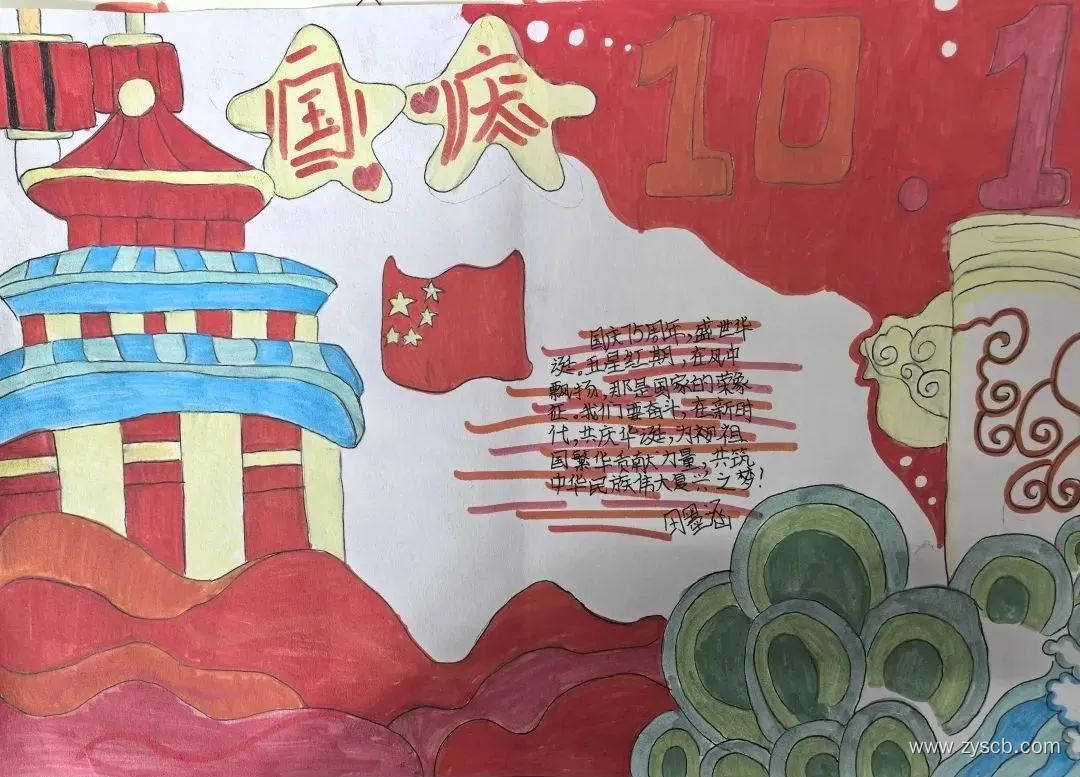 国庆
10.1
国庆75周年,盛世华
诞。五星红期,在风中
飘扬,那是国家的荣象
征。我们要奋斗,在新时
代,共庆华诞,为祝祖
国繁华贡献力量,共筑
中华民族伟大复兴之梦!
田墨涵
www.zyscb.com